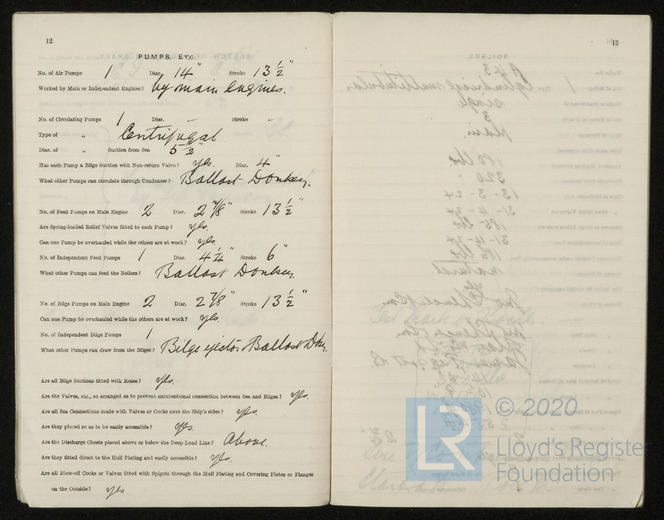 12
PUMPS, ETC.
No. of Air Pumps 1 Diar. 14" Stroke 13 ½"
Worked by Main or Independent Engines? by main engines.
No. of Circulating Pumps 1 Diar. – Stroke –
Type of " Centrifugal
Diar. of " Suction from Sea 5 ½"
Has each Pump a Bilge Suction with Non-return Valve? yes. Diar. 4"
What other Pumps can circulate through Condenser? Ballast Donkey.
No. of Feed Pumps on Main Engine 2 Diar. 2 7/8" Stroke 13 ½"
Are Spring-loaded Relief Valves fitted to each Pump? yes.
Can one Pump be overhauled while the others are at work? yes.
No. of Independent Feed Pumps 1 Diar. 4 ¼" Stroke 6"
What other Pumps can feed the Boilers? Ballast Donkey.
No. of Bilge Pumps on Main Engine 2 Diar. 2 7/8" Stroke 13 ½"
Can one Pump be overhauled while the others are at work? yes.
No. of Independent Bilge Pumps 1
What other Pumps can draw from the Bilges? Bilge ejector. Ballast Dky.
Are all Bilge Suctions fitted with Roses? yes.
Are the Valves, etc., so arranged as to prevent unintentional connection between Sea and Bilges? yes.
Are all Sea Connections made with Valves or Cocks next the Ship's sides? yes.
Are they placed so as to be easily accessible? yes.
Are the Discharge Chests placed above or below the Deep Load Line? Above.
Are they fitted direct to the Hull Plating and easily accessible? yes.
Are all Blow-off Cocks or Valves fitted with Spigots through the Hull Plating and Covering Plates or Flanges
on the Outside? yes
13
© 2020
LR
Lloyd's Register
Foundation